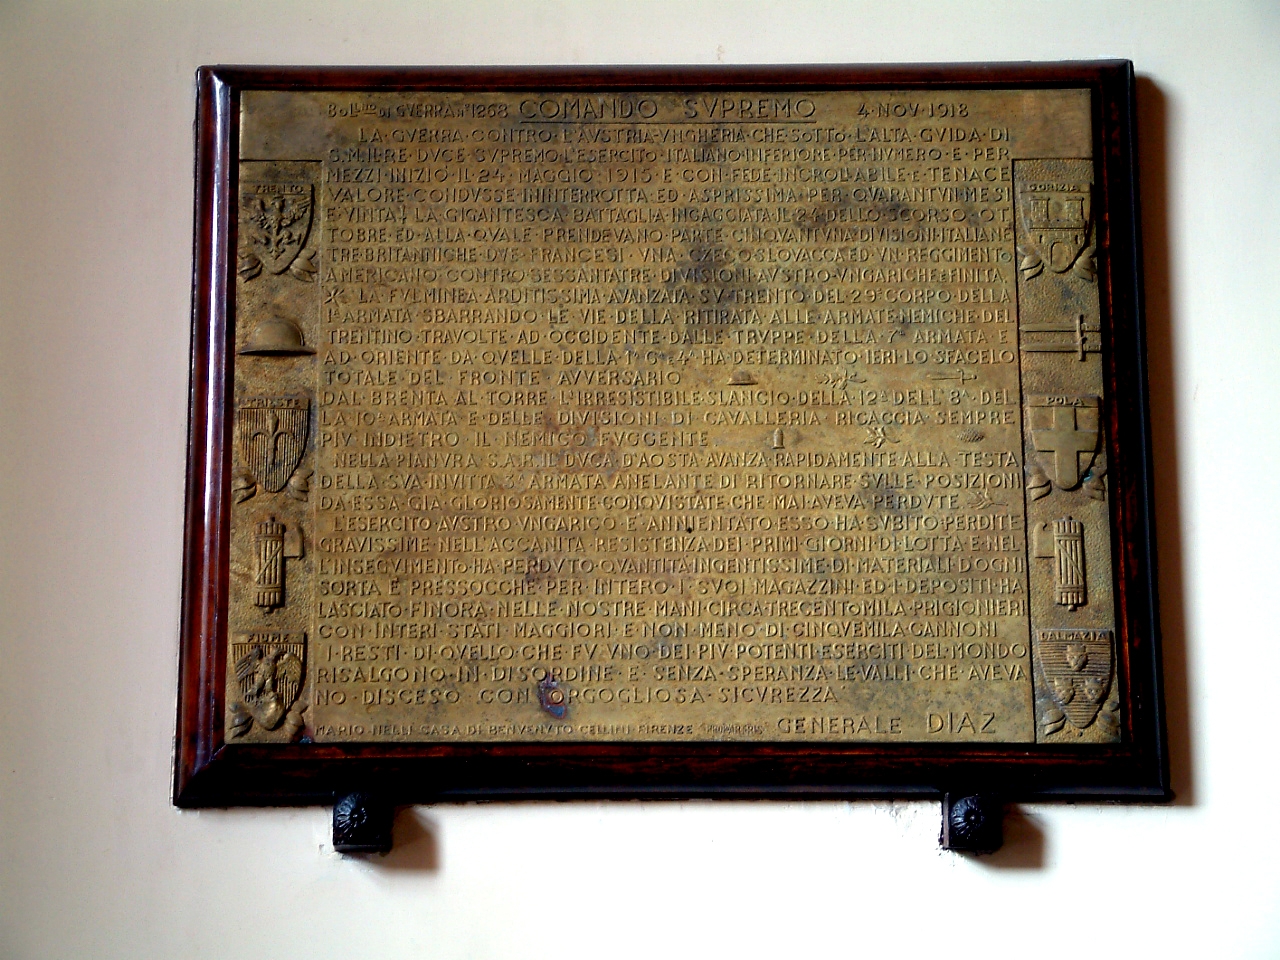 BOLL.NO DI GVERRA N° 1268 COMANDO SVPREMO 4·NOV·1918
LA·GVERRA·CONTRO·L'AVSTRIA·VNGHERIA·CHE·SOTTO·L'ALTA·GVIDA·DI
S.M.IL·RE·DVCE·SVPREMO·L'ESERCITO·ITALIANO·INFERIORE·PER·NVMERO·E·PER
MEZZI·INIZIÒ·IL·24·MAGGIO·1915·E·CON·FEDE·INCROLLABILE·E·TENACE
VALORE·CONDVSSE·ININTERROTTA·ED·ASPRISSIMA·PER·QVARANTVN·MESI
È·VINTA·LA·GIGANTESCA·BATTAGLIA·INGAGGIATA·IL·24·DELLO·SCORSO·OT
TOBRE·ED·ALLA·QVALE·PRENDEVANO·PARTE·CINQVANTVNA·DIVISIONI·ITALIANE
TRE·BRITANNICHE·DVE·FRANCESI·VNA·CZECO·SLOVACCA·ED·VN·REGGIMENTO
AMERICANO·CONTRO·SESSANTATRE·DIVISIONI·AVSTRO·VNGARICHE·È·FINITA
LA·FVLMINEA·ARDITISSIMA·AVANZATA·SV·TRENTO·DEL·29°·CORPO·DELLA
1ª·ARMATA·SBARRANDO·LE·VIE·DELLA·RITIRATA·ALLE·ARMATE·NEMICHE·DEL
TRENTINO·TRAVOLTE·AD·OCCIDENTE·DALLE·TRVPPE·DELLA·7ª·ARMATA·E
AD·ORIENTE·DA·QVELLE·DELLA·1ª·6ª·E·4ª·HA·DETERMINATO·IERI·LO·SFACELO
TOTALE·DEL·FRONTE·AVVERSARIO
DAL·BRENTA·AL·TORRE·L'IRRESISTIBILE·SLANCIO·DELLA·12ª·DELL'8ª·DEL
LA·10ª·ARMATA·E·DELLE·DIVISIONI·DI·CAVALLERIA·RICACCIA·SEMPRE
PIV·INDIETRO·IL·NEMICO·FVGGENTE
NELLA·PIANVRA·S.A.R.IL·DVCA·D'AOSTA·AVANZA·RAPIDAMENTE·ALLA·TESTA
DELLA·SVA·INVITTA·3ª·ARMATA·ANELANTE·DI·RITORNARE·SVLLE·POSIZIONI
DA·ESSA·GIÀ·GLORIOSAMENTE·CONQVISTATE·CHE·MAI·AVEVA·PERDVTE
L'ESERCITO·AVSTRO·VNGARICO·È·ANNIENTATO·ESSO·HA·SVBITO·PERDITE
GRAVISSIME·NELL'ACCANITA·RESISTENZA·DEI·PRIMI·GIORNI·DI·LOTTA·E·NEL
L'INSEGVIMENTO·HA·PERDVTO·QVANTITÀ·INGENTISSIME·DI·MATERIALI·D'OGNI
SORTA·E·PRESSOCCHE·PER·INTERO·I·SVOI·MAGAZZINI·ED·I·DEPOSITI·HA
LASCIATO·FINORA·NELLE·NOSTRE·MANI·CIRCA·TRECENTO·MILA·PRIGIONIERI
CON·INTERI·STATI·MAGGIORI·E·NON·MENO·DI·CINQVEMILA·CANNONI
I·RESTI·DI·QVELLO·CHE·FV·VNO·DEI·PIV·POTENTI·ESERCITI·DEL·MONDO
RISALGONO·IN·DISORDINE·E·SENZA·SPERANZA·LE·VALLI·CHE·AVEVA
NO·DISCESO·CON·ORGOGLIOSA·SICVREZZA
MARIO·NELLI·CASA·DI·BENVENVTO·CELLINI·FIRENZE GENERALE DIAZ
TRENTO
TRIESTE
FIVME
GORIZIA
POLA
DALMAZIA